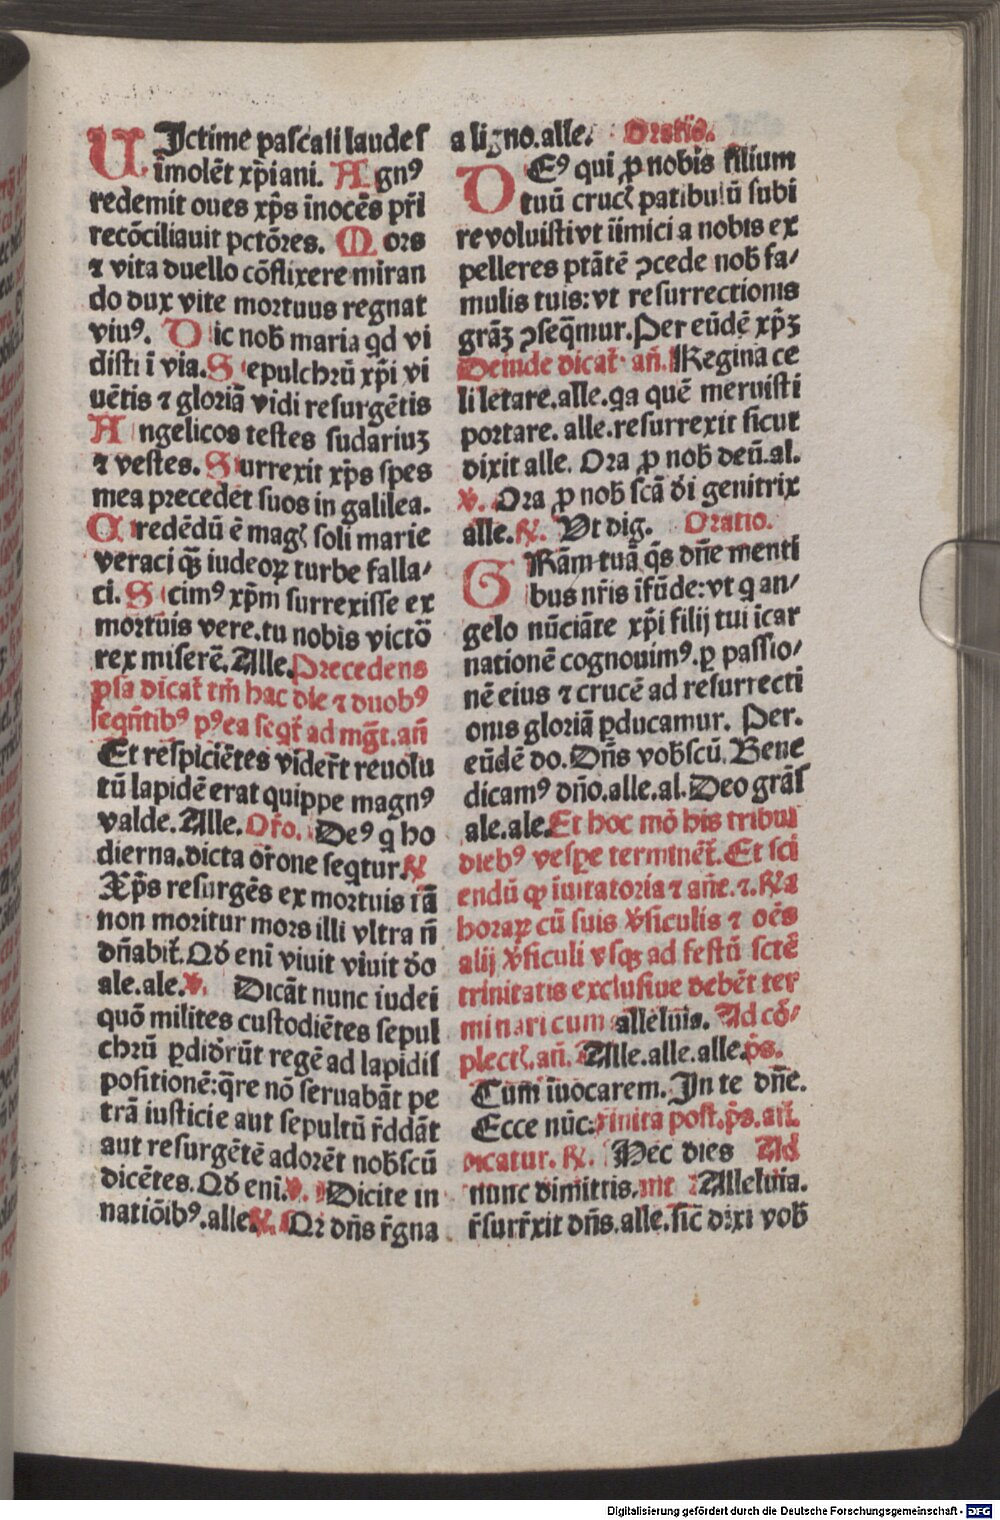 UJctime pascali laudes
īmolēt xp̄iani. Agnꝰ
redemit oues xp̄s īnocēs pr̄i
recōciliauit pctōres. Mors
⁊ vita duello cōflixere miran
do dux vite mortuus regnat
viuꝰ. Dic nob̄ maria qd vi
disti ī via. Sepulchrū xp̄i vi
uētis ⁊ gloriā vidi resurgētis
Angelicos testes sudariuꝫ
⁊ vestes. Surrexit xp̄s spes
mea precedet suos in galilea.
Credēdū ē maḡ soli marie
veraci qꝫ̄ iudeoꝝ turbe falla/
ci. Scimꝰ xp̄m surrexisse ex
mortuis vere.tu nobis victō
rex miserē. Alle. Precedens
ꝓsa dicat̄ tm̄ hac die ⁊ duobꝰ
seqn̄tibꝰ pꝰea seqt̄ ad mḡt. an̄
Et respiciētes vider̄t reuolu
tū lapidē erat quippe magnꝰ
valde. Alle. Oro. Deꝰ q̄ ho
dierna.dicta or̄one seqtur. ℟
Xp̄s resurgēs ex mortuis iā
non moritur mors illi vltra n̄
dn̄abit̄. Qd̄ enī viuit viuit d̄o
ale.ale. ℣. Dicāt nunc iudei
quō milites custodiētes sepul
chrū ꝑdider̄ūt regē ad lapidis
positionē: q̄re nō seruabāt pe
trā iusticie aut sepultū r̄ddāt
aut resurgētē adorēt nob̄scū
dicētes. Qd̄ enī. ℣. Dicite in
natiōibꝰ.alle. ℟. Qz dn̄s r̄gna
a ligno.alle. Oratio.
DEꝰ qui ꝓ nobis filium
tuū cruc̄ patibulū subi
re voluisti vt iīmici a nobis ex
pelleres ptātē ↄcede nob̄ fa/
mulis tuis: vt resurrectionis
grāꝫ ↄseq̄mur. Per eūdē xp̄ꝫ
Deinde dicat̄ an̄. Regina ce
li letare.alle.qa quē meruisti
portare. alle.resurrexit sicut
dixit alle. Ora ꝓ nob̄ deū.al.
℣. Ora ꝓ nob̄ scā d̄i genitrix
alle. ℟. Vt dig. Oratio.
GRām tuā q̄s dn̄e menti
bus nr̄is īfūde: vt q an/
gelo nūciāte xp̄i filij tui īcar
nationē cognouimꝰ.ꝑ passio/
nē eius ⁊ crucē ad resurrecti
onis gloriā ꝑducamur. Per.
eūdē do. Dn̄s vob̄scū. Bene
dicamꝰ dn̄o.alle.al. Deo grās
ale.ale. Et hoc mō his tribus
diebꝰ vespe terminēt̄. Et sci
endū ꝙ īuitatoria ⁊ an̄e. ⁊. ℟a
horaꝝ cū suis v̄siculis ⁊ oēs
alij v̄siculi vsqꝫ ad festū sctē
trinitatis exclusiue debēt ter
minari cum alleluia. Ad cō/
plect̄. an̄. Alle.alle.alle.ps̄.
Cum īuocarem. In te dn̄e.
Ecce nūc: finita post.ps̄.an̄.
dicatur. ℟. Hec dies Ad
nunc dimittis. Alleluia.
r̄surr̄xit dn̄s.alle.sic̄ dixi vob̄